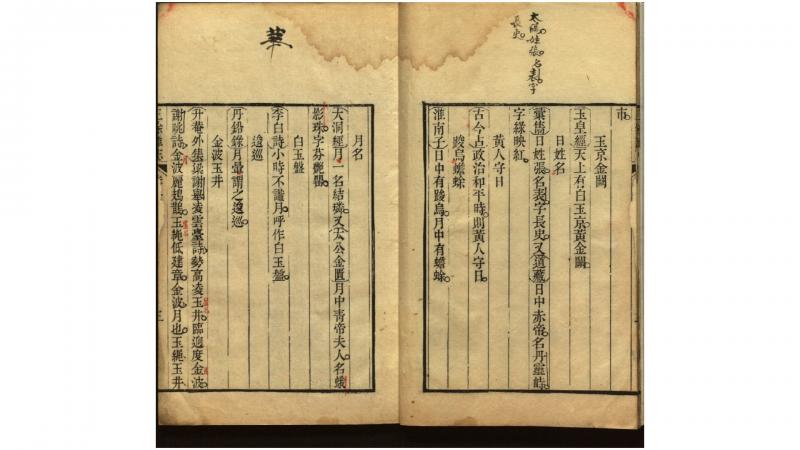 太陽姓張名表字
長史
市
玉京金闕
玉皇經天上有白玉京黃金闕
日姓名
彙蒩日姓張名表字長史又道藏日中赤帝名丹靈峙
字綠映紅
黃人守日
古今占政治和平時則黃人守日
踆烏蟾蜍
淮南子日中有踆烏月中有蟾蜍
華
月名
大洞經月一名結璘又太公金匱月中靑帝夫人名娥
影珠字芬艷嬰
白玉盤
李白詩小時不識月呼作白玉盤
逡巡
丹鉛錄月暈謂之逡巡
金波玉井
升菴外集梁謝舉凌雲臺詩勢高凌玉井臨逈度金波
謝朓詩金波麗鳷鵲玉繩低建章金波月也玉繩玉井
三